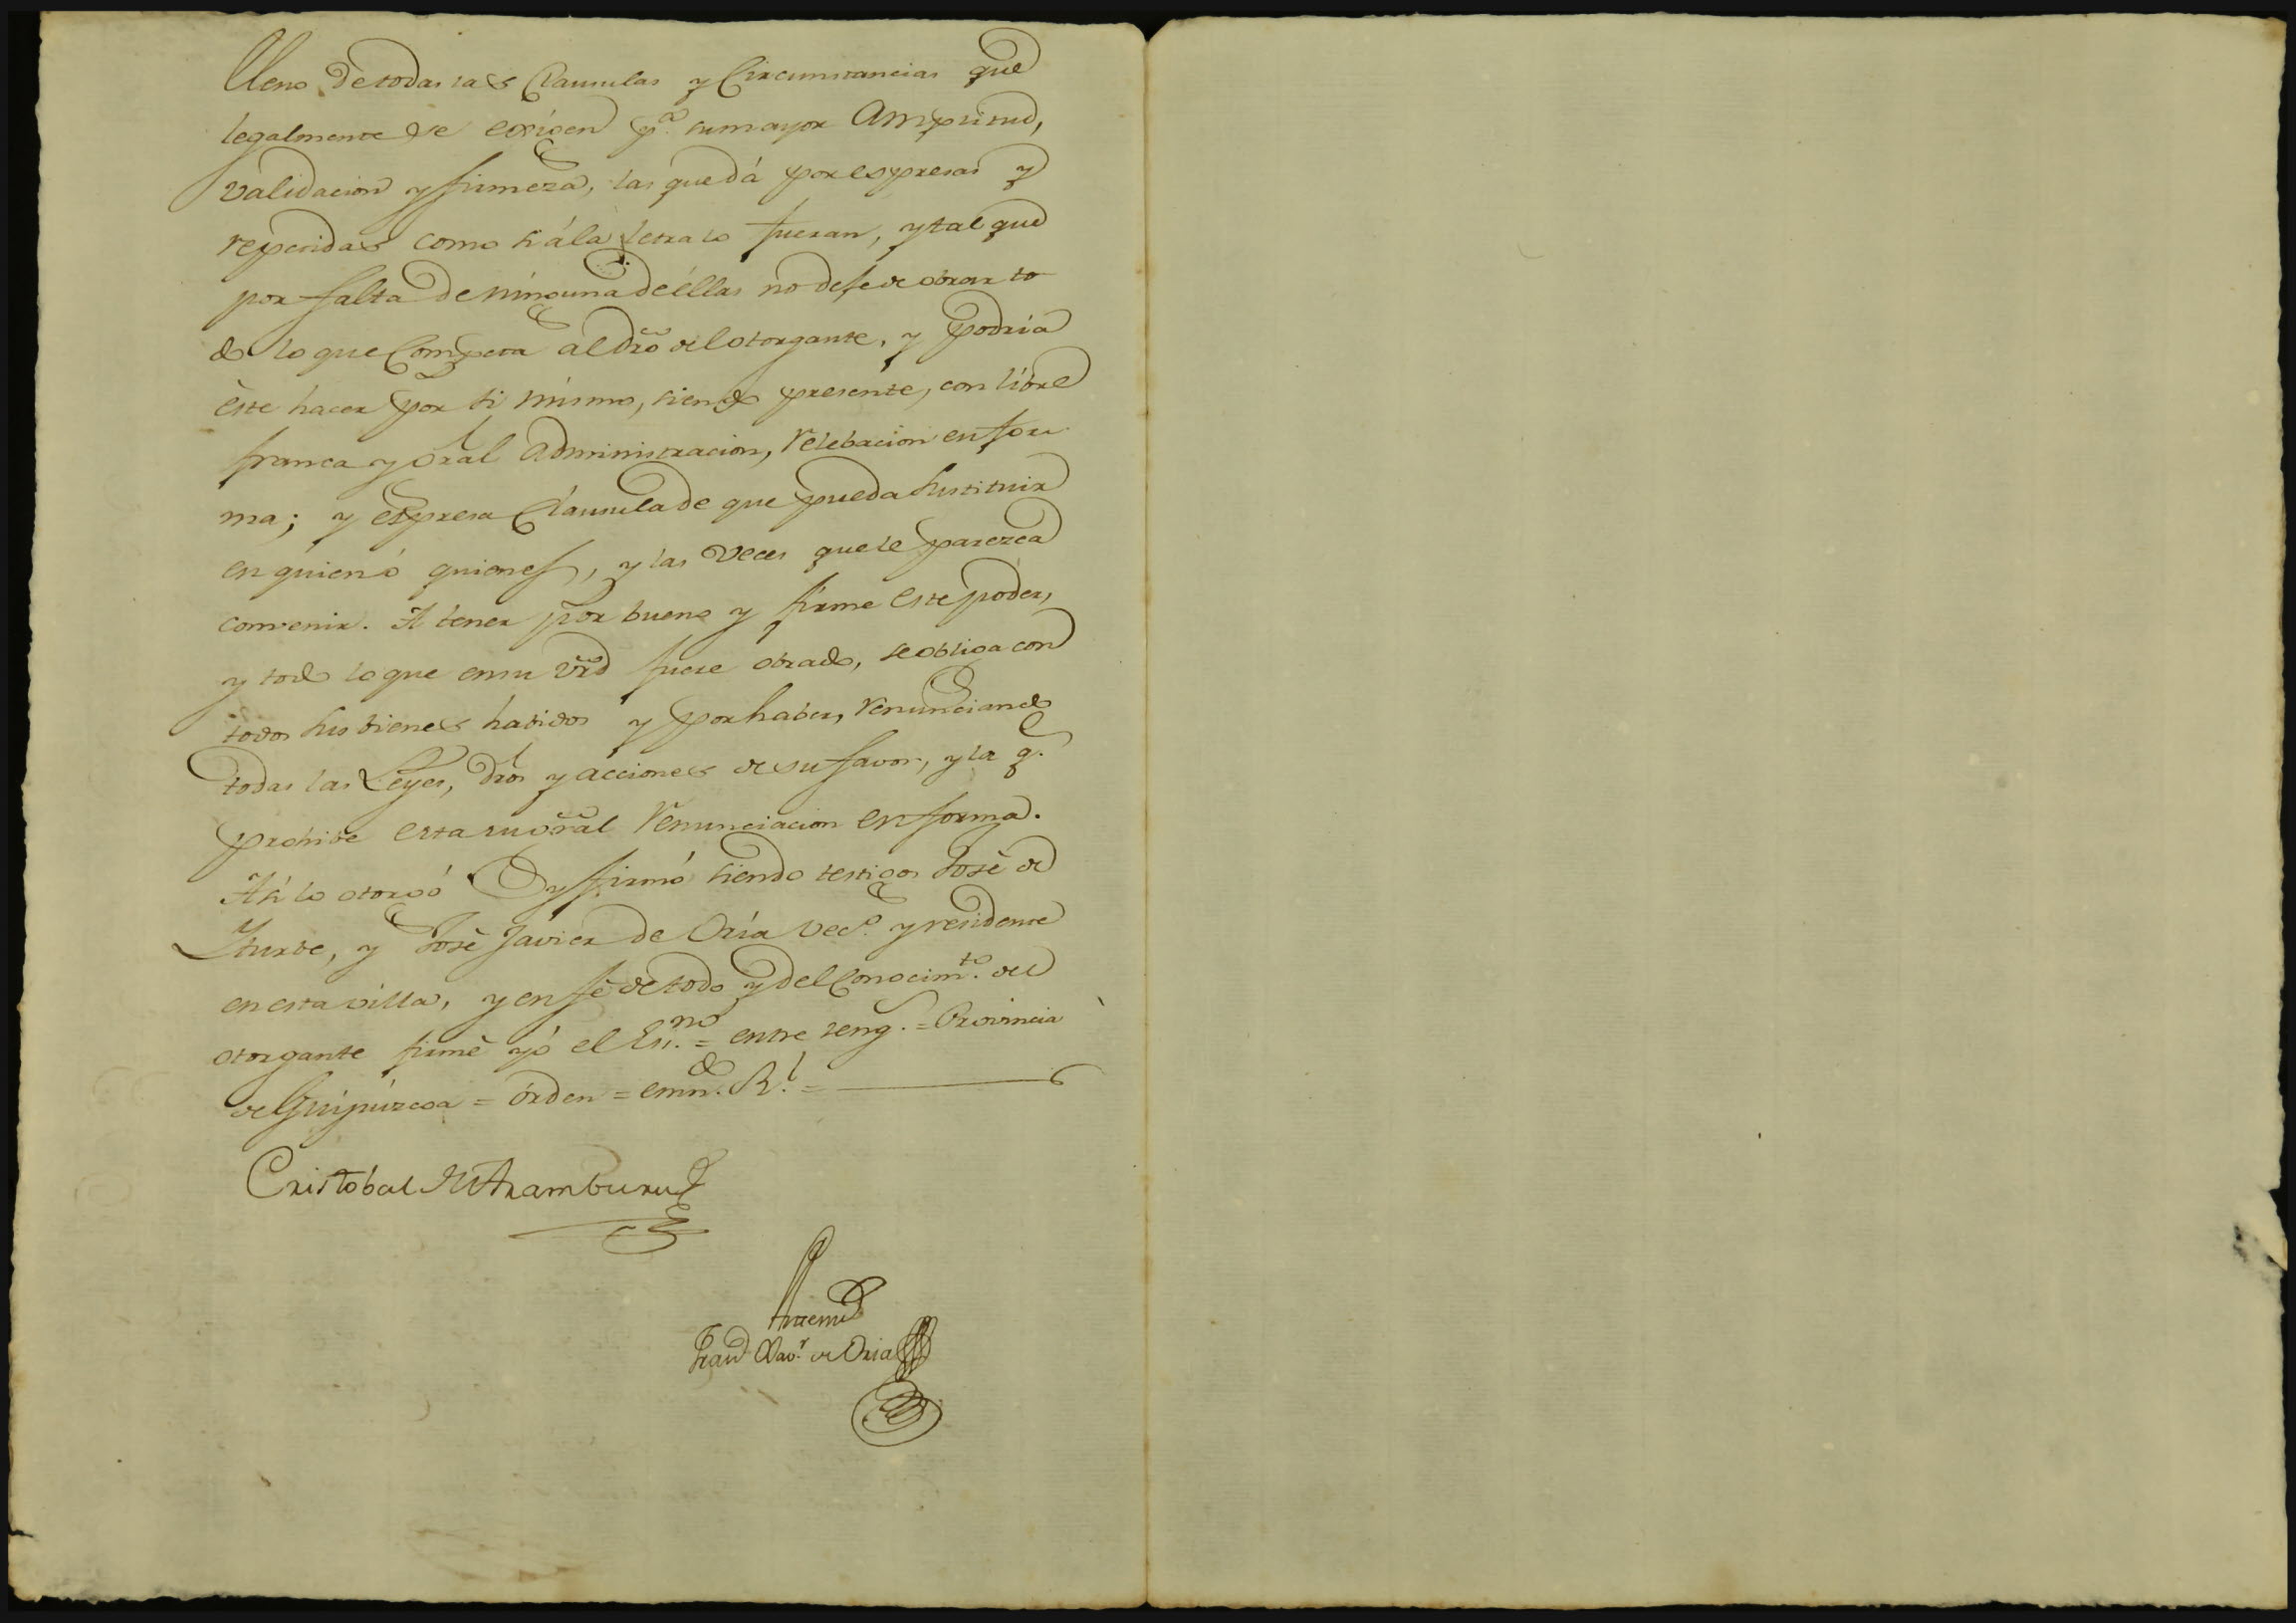 lleno de todas las Clausulas y Circunstancias que
legalmente se exîgen p.ª su mayor Amplitud,
validacion y firmeza, las que dá por espresas y
repetidas como si á la letra lo fueran, y tal que
por falta de ninguna de éllas no deje de obrar to
do lo que Competa al dr̃o del otorgante, y podria
êste hacer por si mismo, siendo presente, con libre
franca y gr̃al Administracion, relebacion en for
ma; y espresa Clausula de que pueda sustituir
en quien ó quienes, y las veces que le parezca
convenir. A tener por bueno y firme este poder,
y todo lo que en su vrd̃ fuere obrado, se obliga con
todos sus bienes habidos y por haber, renunciando
todas las Leyes, dr̃os y acciones de su favor, y la q.e
prohibe esta su gr̃al renunciacion en forma.
Asi lo otorgó y firmó siendo testigos José de
Yturbe, y José Javier de Oria vec.º y residente
en esta villa, y en fé de todo y del Conocim.to del
otorgante firmé yó el Es.no = entre reng. = Provincia
de Guipúzcoa = órden = emn.do R.l =
Cristóbal M Aramburu
Ante mi
Fran.co Xav.r de Oria